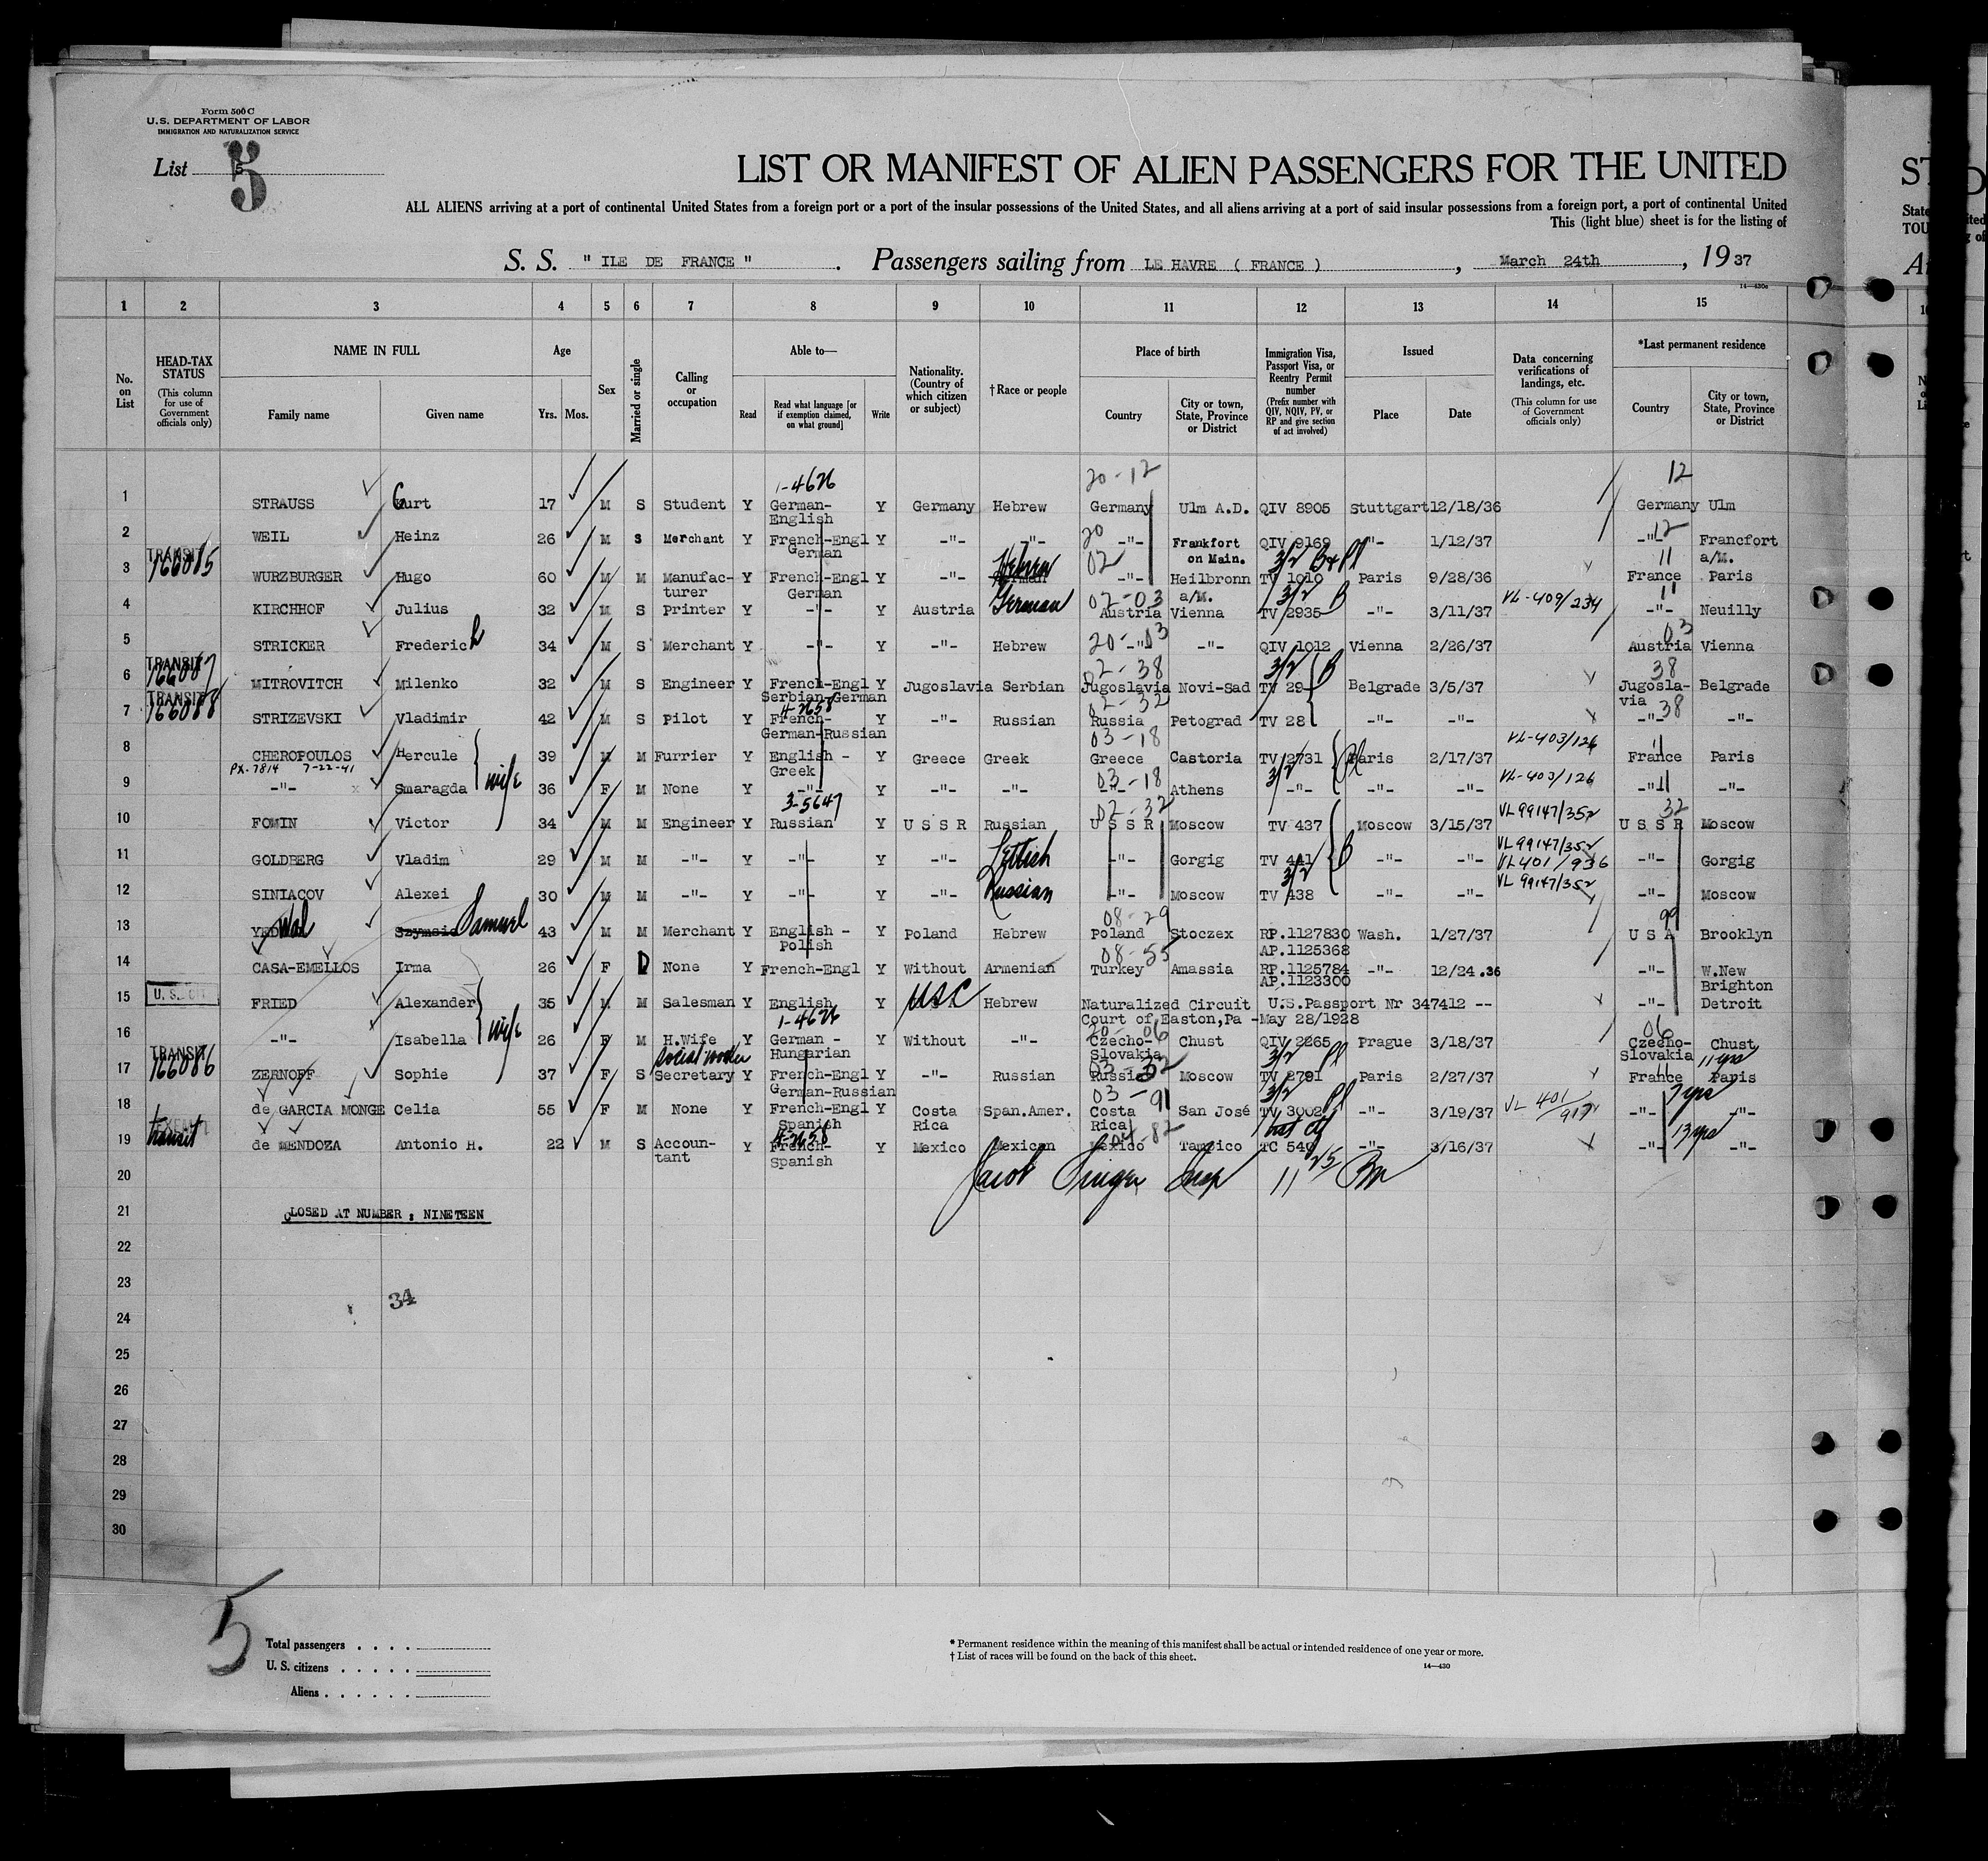 Form 500 C
U.S. DEPARTMENT OF LABOR
IMMIGRATION AND NATURALIZATION SERVICE
List 5
LIST OR MANIFEST OF ALIEN PASSENGERS FOR THE UNITED
ALL ALIENS arriving at a port of continental United States from a foreign port or a port of the insular possessions of the United States, and all aliens arriving at a port of said insular possessions from a foreign port, a port of continental United
This (light blue) sheet is for the listing of
S. S. " ILE DE FRANCE " . Passengers sailing from LE HAVRE ( FRANCE ) , March 24th , 19 37
14—430c
1 2 3 4 5 6 7 8 9 10 11 12 13 14 15
No. on List
HEAD-TAX STATUS (This column for use of Government officials only)
NAME IN FULL Family name Given name
Age Yrs. Mos.
Sex
Married or single
Calling or occupation
Able to— Read Read what language [or if exemption claimed, on what ground] Write
Nationality. (Country of which citizen or subject)
† Race or people
Place of birth Country City or town, State, Province or District
Immigration Visa, Passport Visa, or Reentry Permit number (Prefix number with QIV, NQIV, PV, or RP and give section of act involved)
Issued Place Date
Data concerning verifications of landings, etc. (This column for use of Government officials only)
*Last permanent residence Country City or town, State, Province or District
1-4626 20-12 12
1 STRAUSS Kurt 17 M S Student Y German-English Y Germany Hebrew Germany Ulm A.D. QIV 8905 Stuttgart 12/18/36 Germany Ulm
20 12
2 WEIL Heinz 26 M S Merchant Y French-Engl German Y -"- -"- -"- Frankfort on Main. QIV 9169 -"- 1/12/37 -"- Francfort a/M.
TRANSIT 166085 Hebrew 02 3/2 11
3 WURZBURGER Hugo 60 M M Manufacturer Y French-Engl German Y -"- German -"- Heilbronn a/M. TV 1010 Paris 9/28/36 France Paris
German 02-03 3/2 VL-409/234 11
4 KIRCHHOF Julius 32 M S Printer Y -"- Y Austria Austria Vienna TV 2935 -"- 3/11/37 -"- Neuilly
20-03 03
5 STRICKER Frederich 34 M S Merchant Y -"- Y -"- Hebrew -"- -"- QIV 1012 Vienna 2/26/37 Austria Vienna
TRANSIT 166087 02-38 3/2 38
6 MITROVITCH Milenko 32 M S Engineer Y French-Engl Serbian-German Y Jugoslavia Serbian Jugoslavia Novi-Sad TV 29 Belgrade 3/5/37 Jugoslavia Belgrade
TRANSIT 166088 4-2658 02-32 38
7 STRIZEVSKI Vladimir 42 M S Pilot Y French-German-Russian Y -"- Russian Russia Petograd TV 28 -"- -"- -"- -"-
03-18 VL-403/126 11
8 CHEROPOULOS Hercule 39 M M Furrier Y English - Greek Y Greece Greek Greece Castoria TV 2731 Paris 2/17/37 France Paris
PX-7814 7-22-41 wife 03-18 3/2 VL-403/126 11
9 -"- Smaragda 36 F M None Y -"- Y -"- -"- -"- Athens -"- -"- -"- -"- -"-
3-5647 02-32 VL 99147/352 32
10 FOMIN Victor 34 M M Engineer Y Russian Y U S S R Russian U S S R Moscow TV 437 Moscow 3/15/37 U S S R Moscow
Lettish VL 99147/352 VL401/936
11 GOLDBERG Vladim 29 M M -"- Y -"- Y -"- -"- Gorgig TV 441 -"- -"- -"- Gorgig
Russian 3/2 VL 99147/352
12 SINIACOV Alexei 30 M M -"- Y -"- Y -"- -"- Moscow TV 438 -"- -"- -"- Moscow
Samuel 08-29 99
13 43 M M Merchant Y English - Polish Y Poland Hebrew Poland Stoczex RP.1127830 AP.1125368 Wash. 1/27/37 U S A Brooklyn
08-55
14 CASA-EMELLOS Irma 26 F D None Y French-Engl Y Without Armenian Turkey Amassia RP.1125784 AP.1123300 -"- 12/24.36 -"- W.New Brighton
15 FRIED Alexander 35 M M Salesman Y English Y USC Hebrew Naturalized Circuit Court of Easton,Pa -May 28/1928 U.S.Passport Nr 347412 -- -"- Detroit
wife 1-4626 20-06 06
16 -"- Isabella 26 F M H.Wife Y German - Hungarian Y Without -"- Czecho-Slovakia Chust QIV 2265 Prague 3/18/37 Czecho-Slovakia Chust
TRANSIT 166086 social worker 03-32 3/2 11 11 yrs
17 ZERNOFF Sophie 37 F S Secretary Y French-Engl German-Russian Y -"- Russian Russia Moscow TV 2791 Paris 2/27/37 France Paris
03-91 3/2 VL 401/917 7 yrs
18 de GARCIA MONGE Celia 55 F M None Y French-Engl Spanish Y Costa Rica Span.Amer. Costa Rica San José TV 3002 -"- 3/19/37 -"- -"-
transit 4-2658 04-82 13 yrs
19 de MENDOZA Antonio H. 22 M S Accountant Y French-Spanish Y Mexico Mexican Mexico Tampico TC 549 -"- 3/16/37 -"- -"-
20 Jacob Singer Insp 11 25
21 CLOSED AT NUMBER : NINETEEN
22
23
34
24
25
26
27
28
29
30
5
Total passengers . . . .
U. S. citizens . . . . .
Aliens . . . . . .
* Permanent residence within the meaning of this manifest shall be actual or intended residence of one year or more.
† List of races will be found on the back of this sheet.
14—430